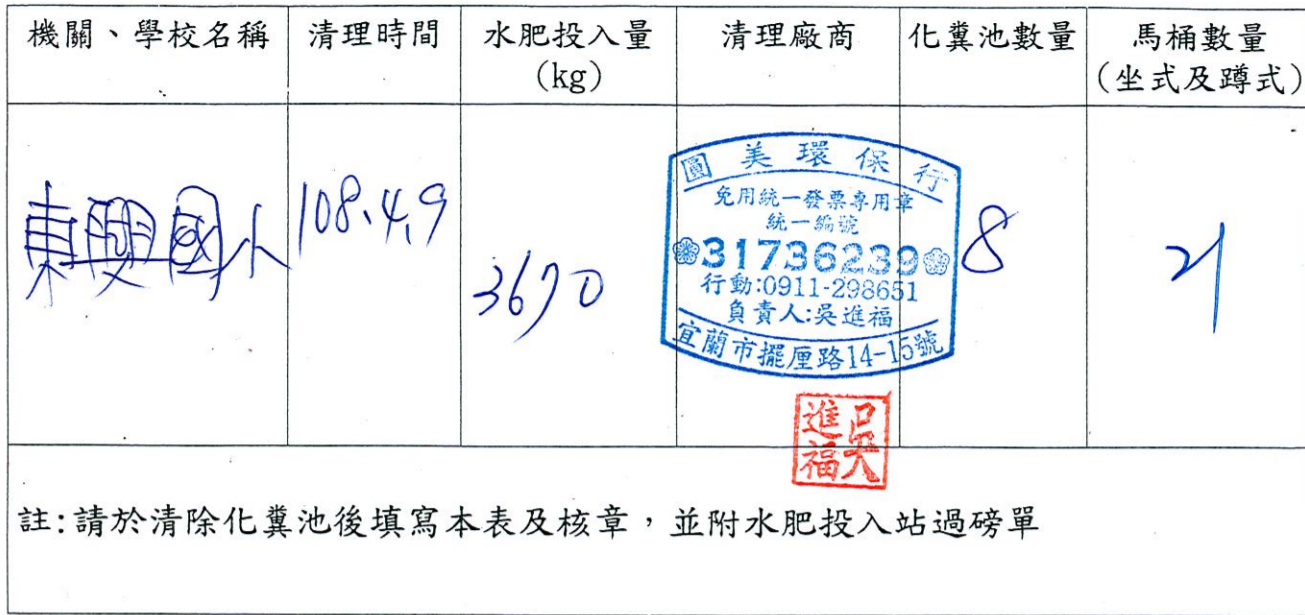 機關、學校名稱
清理時間
水肥投入量
(kg)
清理廠商
化糞池數量
馬桶數量
(坐式及蹲式)
東興國小
108.4.9
3670
圓美環保行
免用統一發票專用章
統一編號
31736239
行動:0911-298651
負責人:吳進福
宜蘭市擺厘路14-15號
吳進福
8
21
註:請於清除化糞池後填寫本表及核章，並附水肥投入站過磅單